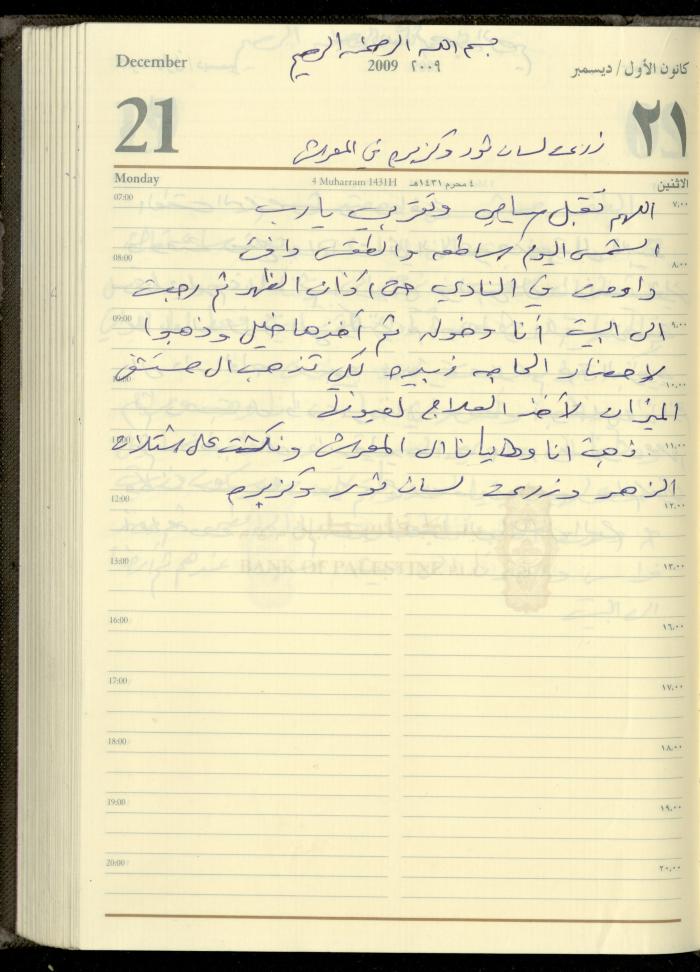 بسم الله الرحمن الرحيم
December
2009 ٢٠٠٩
كانون الأول / ديسمبر
21
٢١
زرعت لسان ثور وكزبره في المعرش
Monday
4 Muharram 1431H ٤ محرم ١٤٣١هـ
الاثنين
07:00 ٧,٠٠
اللهم تقبل صيامي وتقربي يا رب
الشمس اليوم ساطعه والطقس دافئ
08:00 ٨,٠٠
داومت في النادي حتى اذان الظهر ثم رجعت
09:00 ٩,٠٠
الى البيت أنا وخوله ثم أخذها خليل وذهبوا
لاحضار الحاجه زبيده لكي تذهب ال مستشفى
١٠,٠٠
الميزان لأخذ العلاج لعيونها
11:00 ١١,٠٠
ذهبت انا وطايبانا ال المعرش ونكشت على شتلات
الزهر وزرعت لسان ثور وكزبره
12:00 ١٢,٠٠
13:00 ١٣,٠٠
BANK OF PALESTINE
16:00 ١٦,٠٠
17:00 ١٧,٠٠
18:00 ١٨,٠٠
19:00 ١٩,٠٠
20:00 ٢٠,٠٠